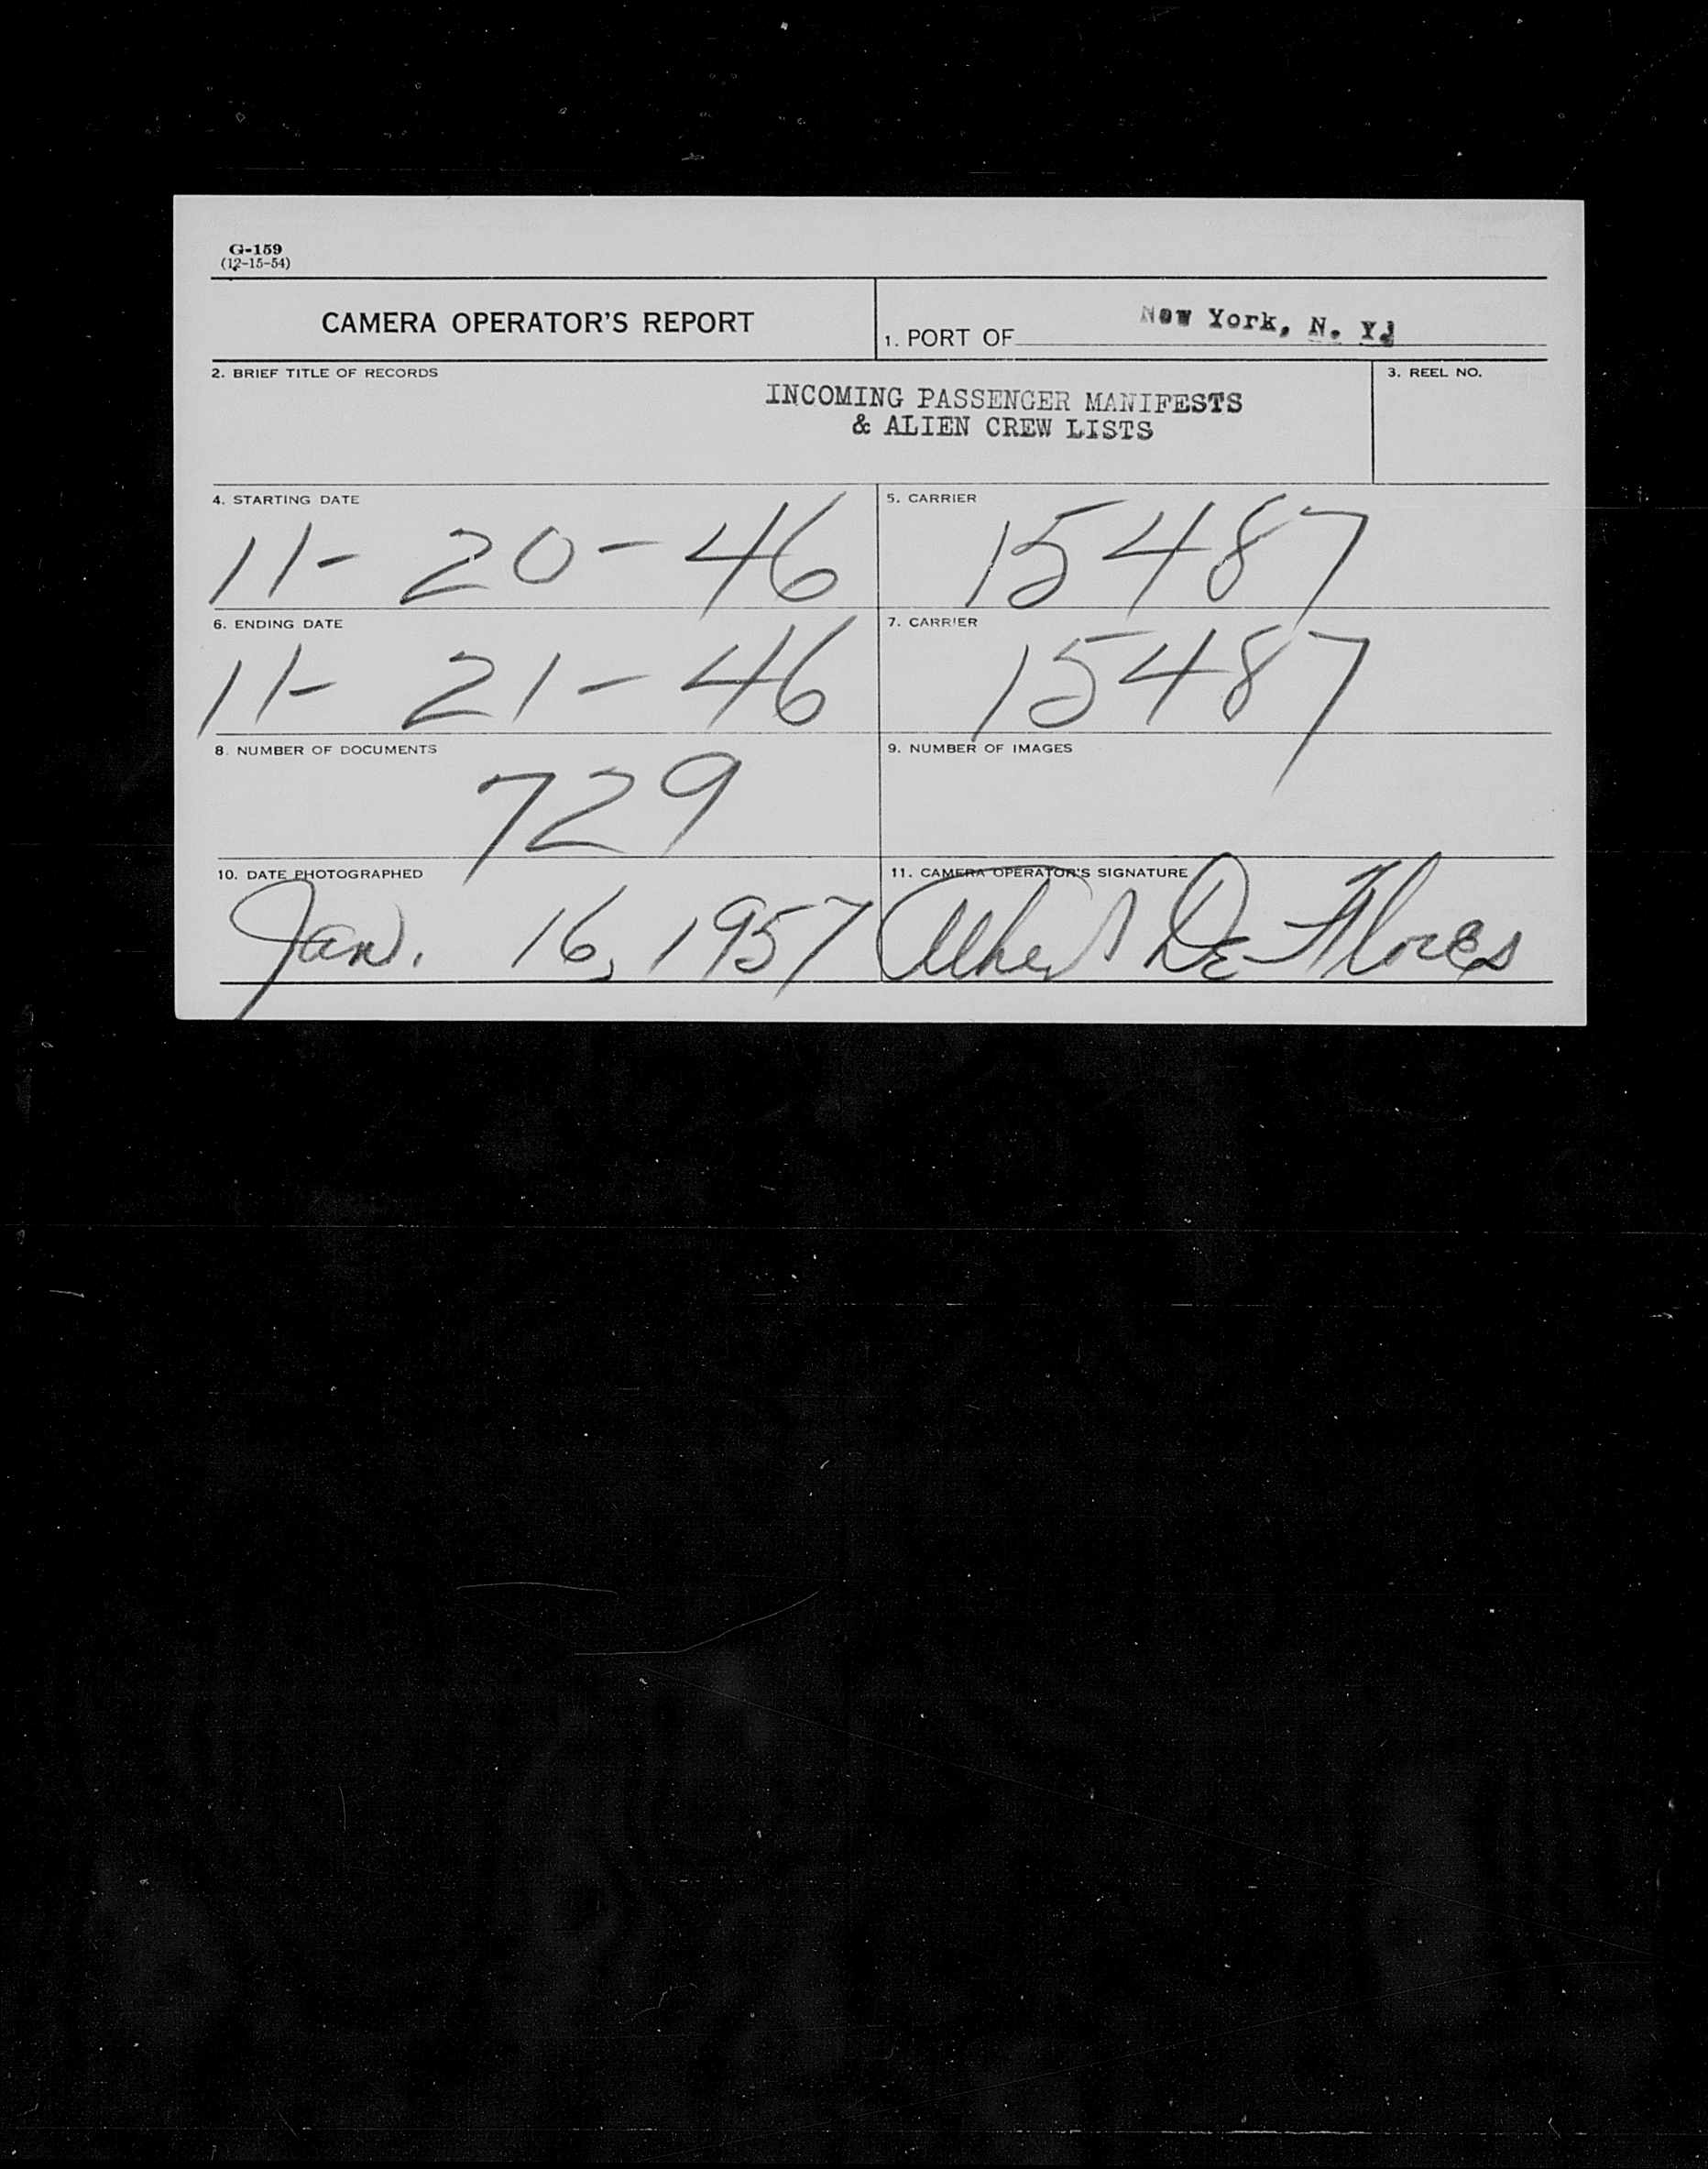 G-159
(12-15-54)
CAMERA OPERATOR'S REPORT
1. PORT OF New York, N. Y.
2. BRIEF TITLE OF RECORDS
INCOMING PASSENGER MANIFESTS
& ALIEN CREW LISTS
3. REEL NO.
4. STARTING DATE
11-20-46
5. CARRIER
15487
6. ENDING DATE
11-21-46
7. CARRIER
15487
8. NUMBER OF DOCUMENTS
729
9. NUMBER OF IMAGES
10. DATE PHOTOGRAPHED
Jan. 16, 1957
11. CAMERA OPERATOR'S SIGNATURE
Albert De Flores